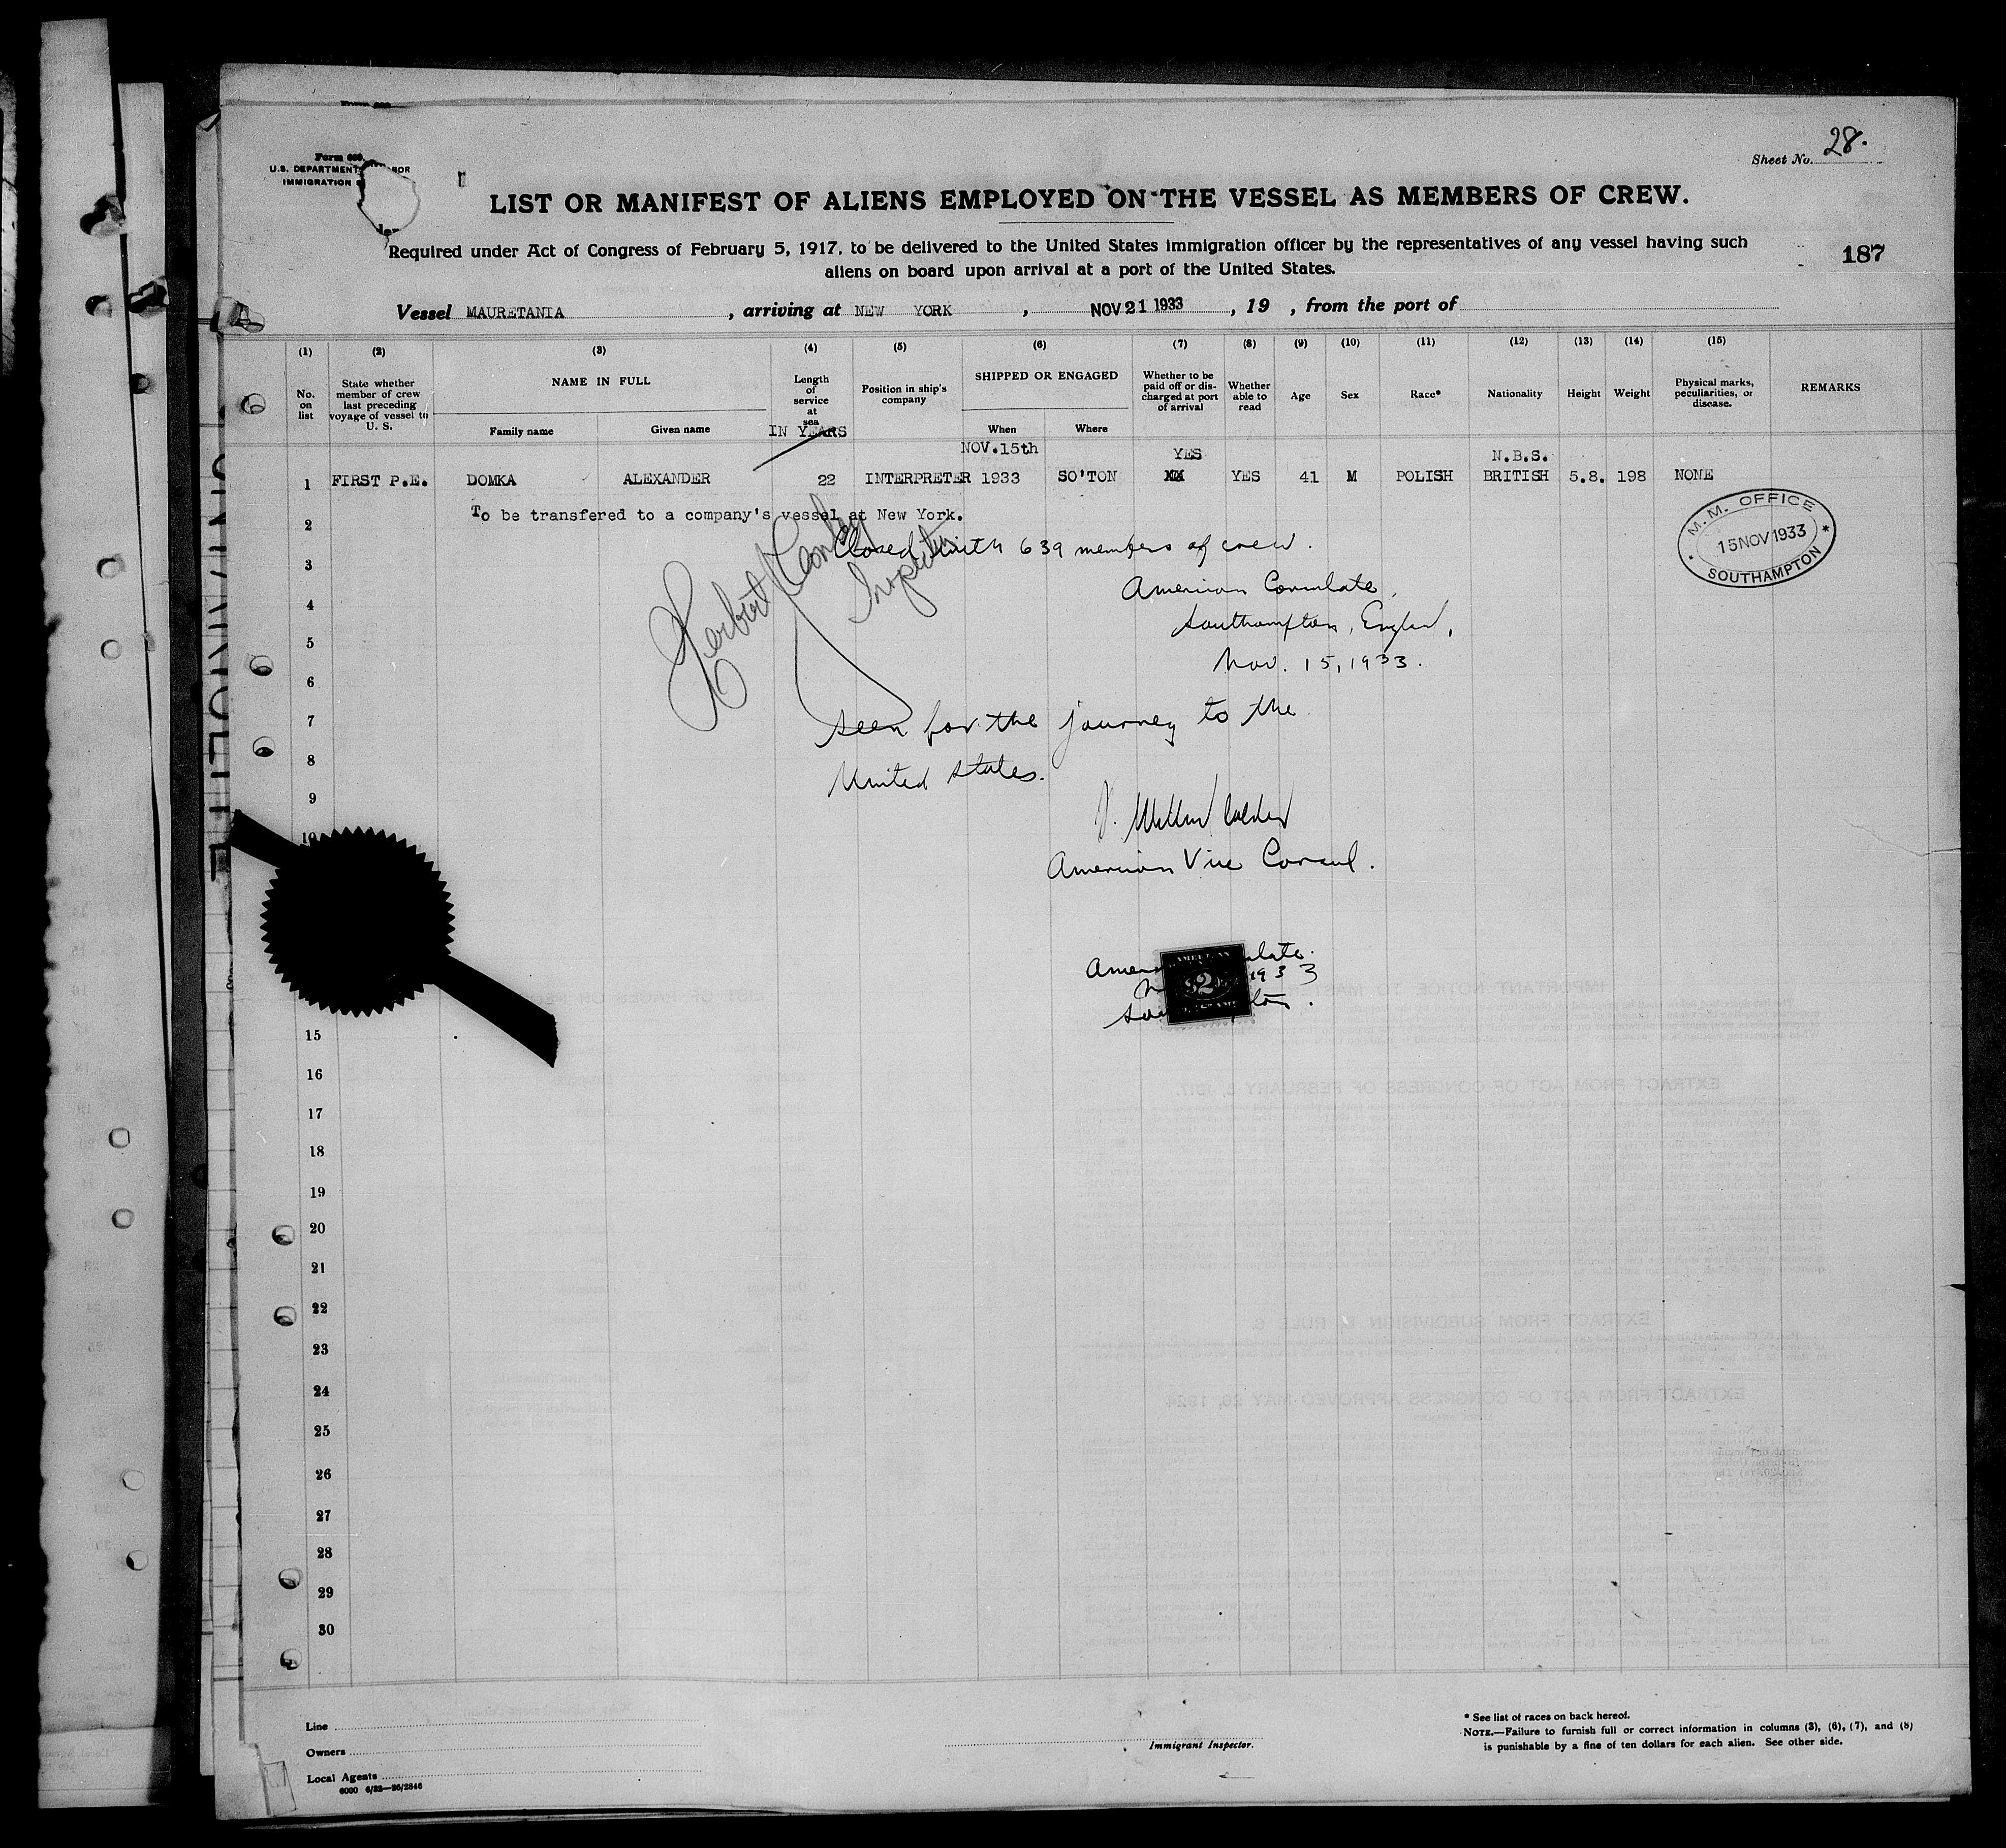 Form 680
U.S. DEPARTMENT
IMMIGRATION
Sheet No. 28.
LIST OR MANIFEST OF ALIENS EMPLOYED ON THE VESSEL AS MEMBERS OF CREW.
Required under Act of Congress of February 5, 1917, to be delivered to the United States immigration officer by the representatives of any vessel having such
aliens on board upon arrival at a port of the United States.
187
Vessel MAURETANIA, arriving at NEW YORK, NOV 21 1933, 19 , from the port of
(1) (2) (3) (4) (5) (6) (7) (8) (9) (10) (11) (12) (13) (14) (15)
No. on list
State whether member of crew last preceding voyage of vessel to U. S.
NAME IN FULL
Family name
Given name
Length of service at sea
IN YEARS
Position in ship's company
SHIPPED OR ENGAGED
When
Where
Whether to be paid off or discharged at port of arrival
Whether able to read
Age
Sex
Race*
Nationality
Height
Weight
Physical marks, peculiarities, or disease.
REMARKS
NOV.15th YES N.B.S.
1 FIRST P.E. DOMKA ALEXANDER 22 INTERPRETER 1933 SO'TON XX YES 41 M POLISH BRITISH 5.8. 198 NONE
2 To be transfered to a company's vessel at New York.
M.M. OFFICE
15 NOV 1933
SOUTHAMPTON
Closed with 639 members of crew.
Herbert
Inspector
3
American Consulate,
4
Southampton, England,
5
Nov. 15, 1933.
6
7
Seen for the journey to the
8
United States.
9
10
American Vice Consul.
American Consulate.
1933
Southampton.
$2
15
16
17
18
19
20
21
22
23
24
25
26
27
28
29
30
Line
Owners
Local Agents
6000 6/32—26/2846
Immigrant Inspector.
* See list of races on back hereof.
NOTE.—Failure to furnish full or correct information in columns (3), (6), (7), and (8)
is punishable by a fine of ten dollars for each alien. See other side.